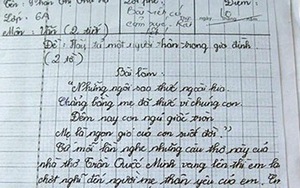 Lớp: 6A
Môn: Văn (2 tiết)
Đề: Hãy tả một người thân trong gia đình
(2 tờ)
Bài làm
"Những ngôi sao thức ngoài kia
Chẳng bằng mẹ đã thức vì chúng con
Đêm nay con ngủ giấc tròn
Mẹ là ngọn gió của con suốt đời."
Cứ mỗi lần nghe những câu thơ này của
nhà thơ Trần Quốc Minh vang lên thì em lại
chợt nghĩ đến người mẹ thân yêu của em. Em